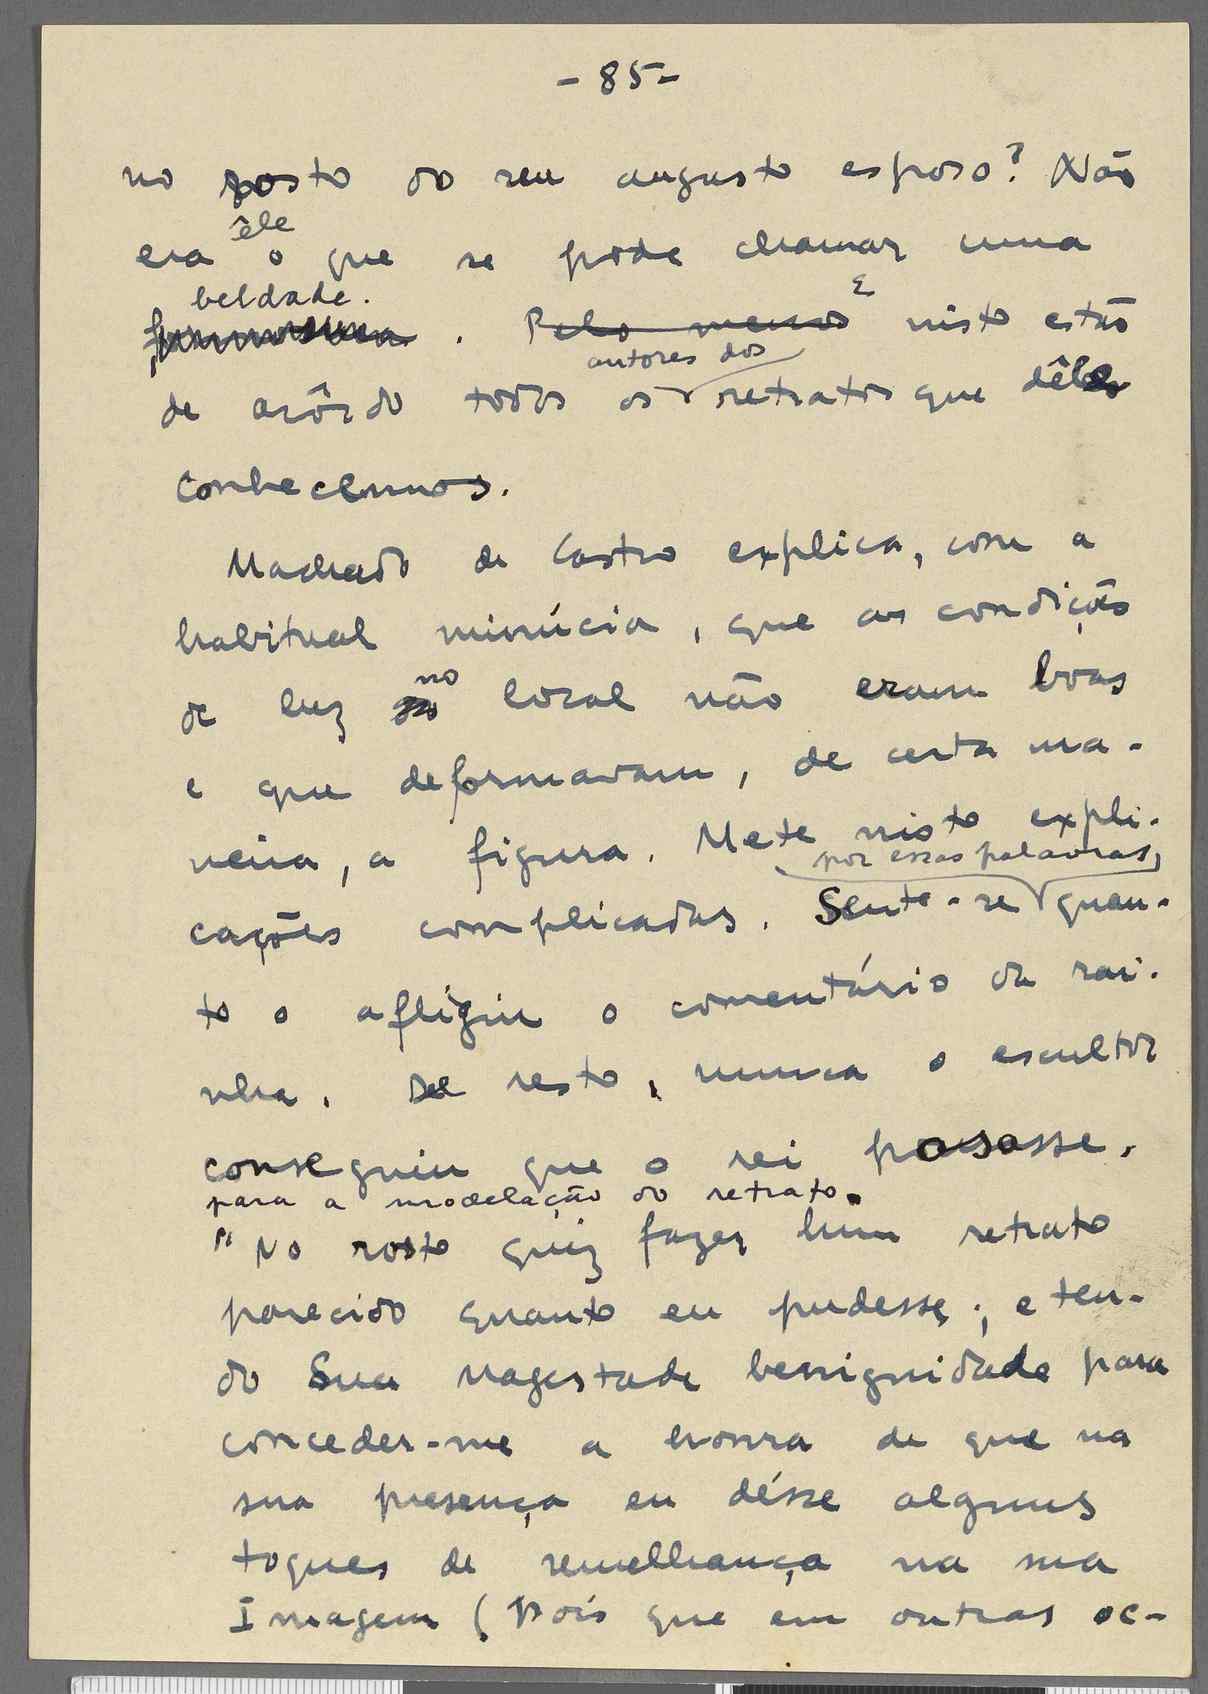 - 85 -
no rosto do seu augusto esposo? Não
êle
era o que se pode chamar uma
beldade.
formosura. Pelo menos E nisto estão
autores dos
de acôrdo todos os retratos que dêle
conhecemos.
Machado de Castro explica, com a
habitual minúcia, que as condições
no
de luz do local não eram boas
e que deformavam, de certa ma-
neira, a figura. Mete nisto expli-
por essas palavras,
cações complicadas. Sente-se quan-
to o afligiu o comentário da rai-
nha. De resto, nunca o escultor
conseguiu que o rei posasse.
para a modelação do retrato.
"No rosto quiz fazer hum retrato
parecido quanto eu pudesse; e ten-
do Sua Magestade benignidade para
conceder-me a honra de que na
sua presença eu désse alguns
toques de semelhança na sua
Imagem (pois que em outras oc-